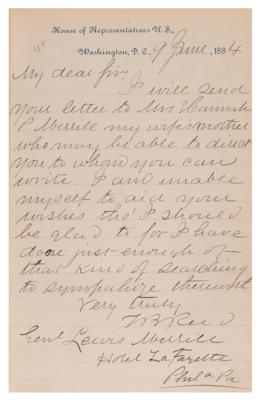 House of Representatives U.S.,
Washington, D.C., 9 June, 1884
My dear Sir:
I will send
your letter to Mrs Hannah
P. Merrill my wife's mother
who may be able to direct
you to whom you can
write. I am unable
myself to aid your
wishes tho' I should
be glad to for I have
done just enough of
that kind of searching
to sympathize therewith
Very truly
T B Reed
Genl Lewis Merrill
Hotel LaFayette
Phila Pa